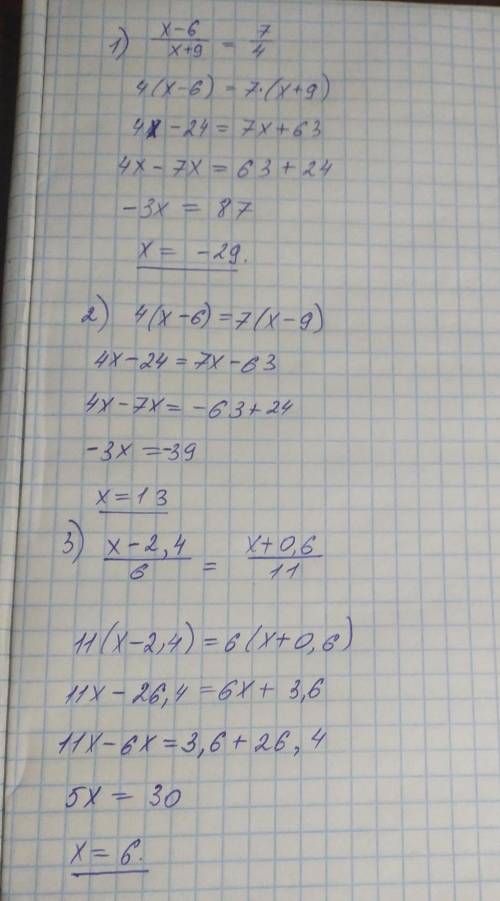 1) (x-6)/(x+9) = 7/4
4(x-6) = 7·(x+9)
4x - 24 = 7x + 63
4x - 7x = 63 + 24
-3x = 87
x = -29.
2) 4(x-6) = 7(x-9)
4x - 24 = 7x - 63
4x - 7x = -63 + 24
-3x = -39
x = 13
3) (x-2,4)/6 = (x+0,6)/11
11(x-2,4) = 6(x+0,6)
11x - 26,4 = 6x + 3,6
11x - 6x = 3,6 + 26,4
5x = 30
x = 6.